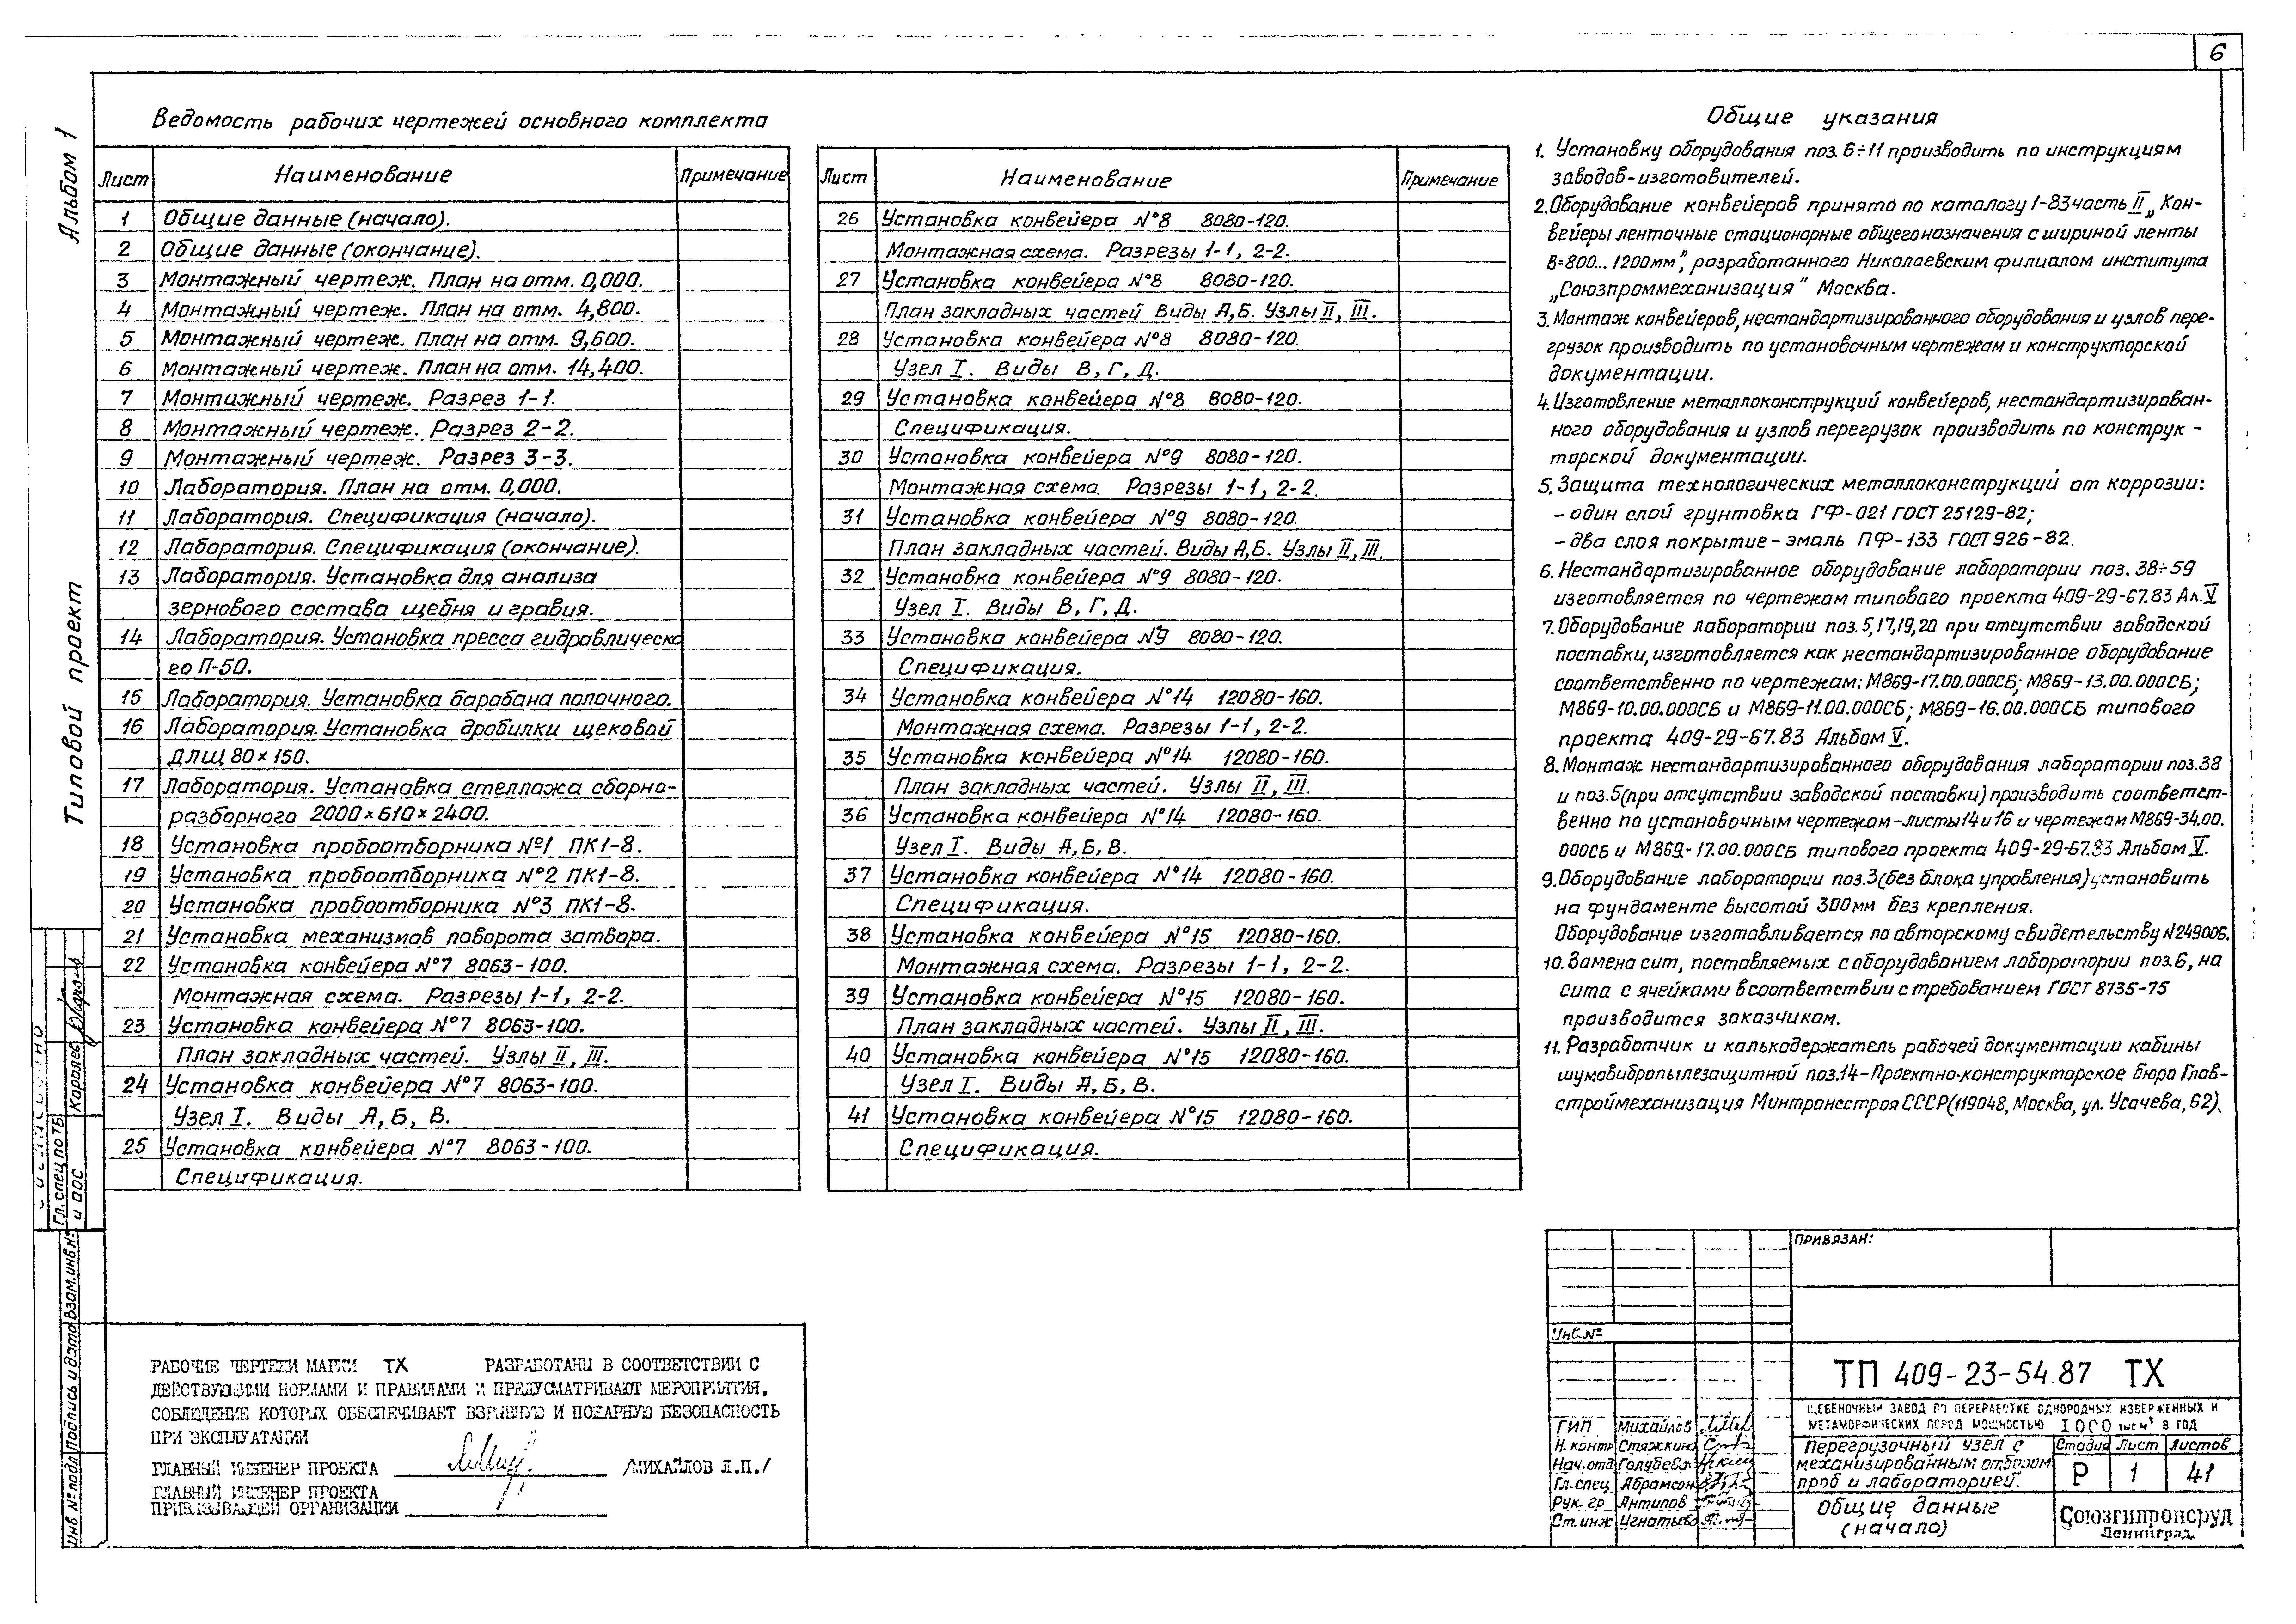 6
Альбом 1
Типовой проект
Ведомость рабочих чертежей основного комплекта
Лист Наименование Примечание
1 Общие данные (начало).
2 Общие данные (окончание).
3 Монтажный чертеж. План на отм. 0,000.
4 Монтажный чертеж. План на отм. 4,800.
5 Монтажный чертеж. План на отм. 9,600.
6 Монтажный чертеж. План на отм. 14,400.
7 Монтажный чертеж. Разрез 1-1.
8 Монтажный чертеж. Разрез 2-2.
9 Монтажный чертеж. Разрез 3-3.
10 Лаборатория. План на отм. 0,000.
11 Лаборатория. Спецификация (начало).
12 Лаборатория. Спецификация (окончание).
13 Лаборатория. Установка для анализа
зернового состава щебня и гравия.
14 Лаборатория. Установка пресса гидравлическо
го П-50.
15 Лаборатория. Установка барабана полочного.
16 Лаборатория. Установка дробилки щековой
ДЛЩ 80×150.
17 Лаборатория. Установка стеллажа сборно-
разборного 2000×610×2400.
18 Установка пробоотборника №1 ПК1-8.
19 Установка пробоотборника №2 ПК1-8.
20 Установка пробоотборника №3 ПК1-8.
21 Установка механизмов поворота затвора.
22 Установка конвейера №7 8063-100.
Монтажная схема. Разрезы 1-1, 2-2.
23 Установка конвейера №7 8063-100.
План закладных частей. Узлы II, III.
24 Установка конвейера №7 8063-100.
Узел I. Виды А, Б, В.
25 Установка конвейера №7 8063-100.
Спецификация.
Лист Наименование Примечание
26 Установка конвейера №8 8080-120.
Монтажная схема. Разрезы 1-1, 2-2.
27 Установка конвейера №8 8080-120.
План закладных частей Виды А,Б. Узлы II, III.
28 Установка конвейера №8 8080-120.
Узел I. Виды В, Г, Д.
29 Установка конвейера №8 8080-120.
Спецификация.
30 Установка конвейера №9 8080-120.
Монтажная схема. Разрезы 1-1, 2-2.
31 Установка конвейера №9 8080-120.
План закладных частей. Виды А,Б. Узлы II, III.
32 Установка конвейера №9 8080-120.
Узел I. Виды В, Г, Д.
33 Установка конвейера №9 8080-120.
Спецификация.
34 Установка конвейера №14 12080-160.
Монтажная схема. Разрезы 1-1, 2-2.
35 Установка конвейера №14 12080-160.
План закладных частей. Узлы II, III.
36 Установка конвейера №14 12080-160.
Узел I. Виды А, Б, В.
37 Установка конвейера №14 12080-160.
Спецификация.
38 Установка конвейера №15 12080-160.
Монтажная схема. Разрезы 1-1, 2-2.
39 Установка конвейера №15 12080-160.
План закладных частей. Узлы II, III.
40 Установка конвейера №15 12080-160.
Узел I. Виды А, Б, В.
41 Установка конвейера №15 12080-160.
Спецификация.
Общие указания
1. Установку оборудования поз. 6÷11 производить по инструкциям
заводов-изготовителей.
2. Оборудование конвейеров принято по каталогу 1-83 часть II „Кон-
вейеры ленточные стационарные общего назначения с шириной ленты
В=800... 1200мм", разработанного Николаевским филиалом института
„Союзпроммеханизация" Москва.
3. Монтаж конвейеров, нестандартизированного оборудования и узлов пере-
грузок производить по установочным чертежам и конструкторской
документации.
4. Изготовление металлоконструкций конвейеров, нестандартизирован-
ного оборудования и узлов перегрузок производить по конструк-
торской документации.
5. Защита технологических металлоконструкций от коррозии:
- один слой грунтовка ГФ-021 ГОСТ 25129-82;
- два слоя покрытие - эмаль ПФ-133 ГОСТ 926-82.
6. Нестандартизированное оборудование лаборатории поз. 38÷59
изготовляется по чертежам типового проекта 409-29-67.83 Ал. V
7. Оборудование лаборатории поз. 5,17,19,20 при отсутствии заводской
поставки, изготовляется как нестандартизированное оборудование
соответственно по чертежам: М869-17.00.000СБ; М869-13.00.000СБ;
М869-10.00.000СБ и М869-11.00.000СБ; М869-16.00.000СБ типового
проекта 409-29-67.83 Альбом V.
8. Монтаж нестандартизированного оборудования лаборатории поз.38
и поз.5 (при отсутствии заводской поставки) производить соответст-
венно по установочным чертежам - листы 14 и 16 и чертежам М869-34.00.
000СБ и М869-17.00.000СБ типового проекта 409-29-67.83 Альбом V.
9. Оборудование лаборатории поз.3 (без блока управления) установить
на фундаменте высотой 300мм без крепления.
Оборудование изготавливается по авторскому свидетельству N249006.
10. Замена сит, поставляемых с оборудованием лаборатории поз.6, на
сита с ячейками в соответствии с требованием ГОСТ 8735-75
производится заказчиком.
11. Разработчик и калькодержатель рабочей документации кабины
шумовибропылезащитной поз.14-Проектно-конструкторское бюро Глав-
строймеханизация Минтрансстроя СССР (119048, Москва, ул. Усачева, 62).
Гл. спец по ТБ
и ООС
Королев
Взам. инв №
Подпись и дата
Инв № подл
РАБОЧИЕ ЧЕРТЕЖИ МАРКИ ТХ РАЗРАБОТАНЫ В СООТВЕТСТВИИ С
ДЕЙСТВУЮЩИМИ НОРМАМИ И ПРАВИЛАМИ И ПРЕДУСМАТРИВАЮТ МЕРОПРИЯТИЯ,
СОБЛЮДЕНИЕ КОТОРЫХ ОБЕСПЕЧИВАЕТ ВЗРЫВНУЮ И ПОЖАРНУЮ БЕЗОПАСНОСТЬ
ПРИ ЭКСПЛУАТАЦИИ
ГЛАВНЫЙ ИНЖЕНЕР ПРОЕКТА /МИХАЙЛОВ Л.П./
ГЛАВНЫЙ ИНЖЕНЕР ПРОЕКТА
ПРИВЯЗЫВАЮЩЕЙ ОРГАНИЗАЦИИ
ПРИВЯЗАН:
Инв. №
ТП 409-23-54.87 ТХ
ЩЕБЕНОЧНЫЙ ЗАВОД ПО ПЕРЕРАБОТКЕ ОДНОРОДНЫХ ИЗВЕРЖЕННЫХ И
МЕТАМОРФИЧЕСКИХ ПОРОД МОЩНОСТЬЮ 1000 тыс м³ В ГОД
ГИП Михайлов
Н. контр Стяжкина
Нач. отд Голубева
Гл. спец Абрамсон
Рук. гр Антипов
Ст. инж Игнатьева
Перегрузочный узел с
механизированным отбором
проб и лабораторией.
Стадия Лист Листов
Р 1 41
Общие данные
(начало)
Союзгипронеруд
Ленинград